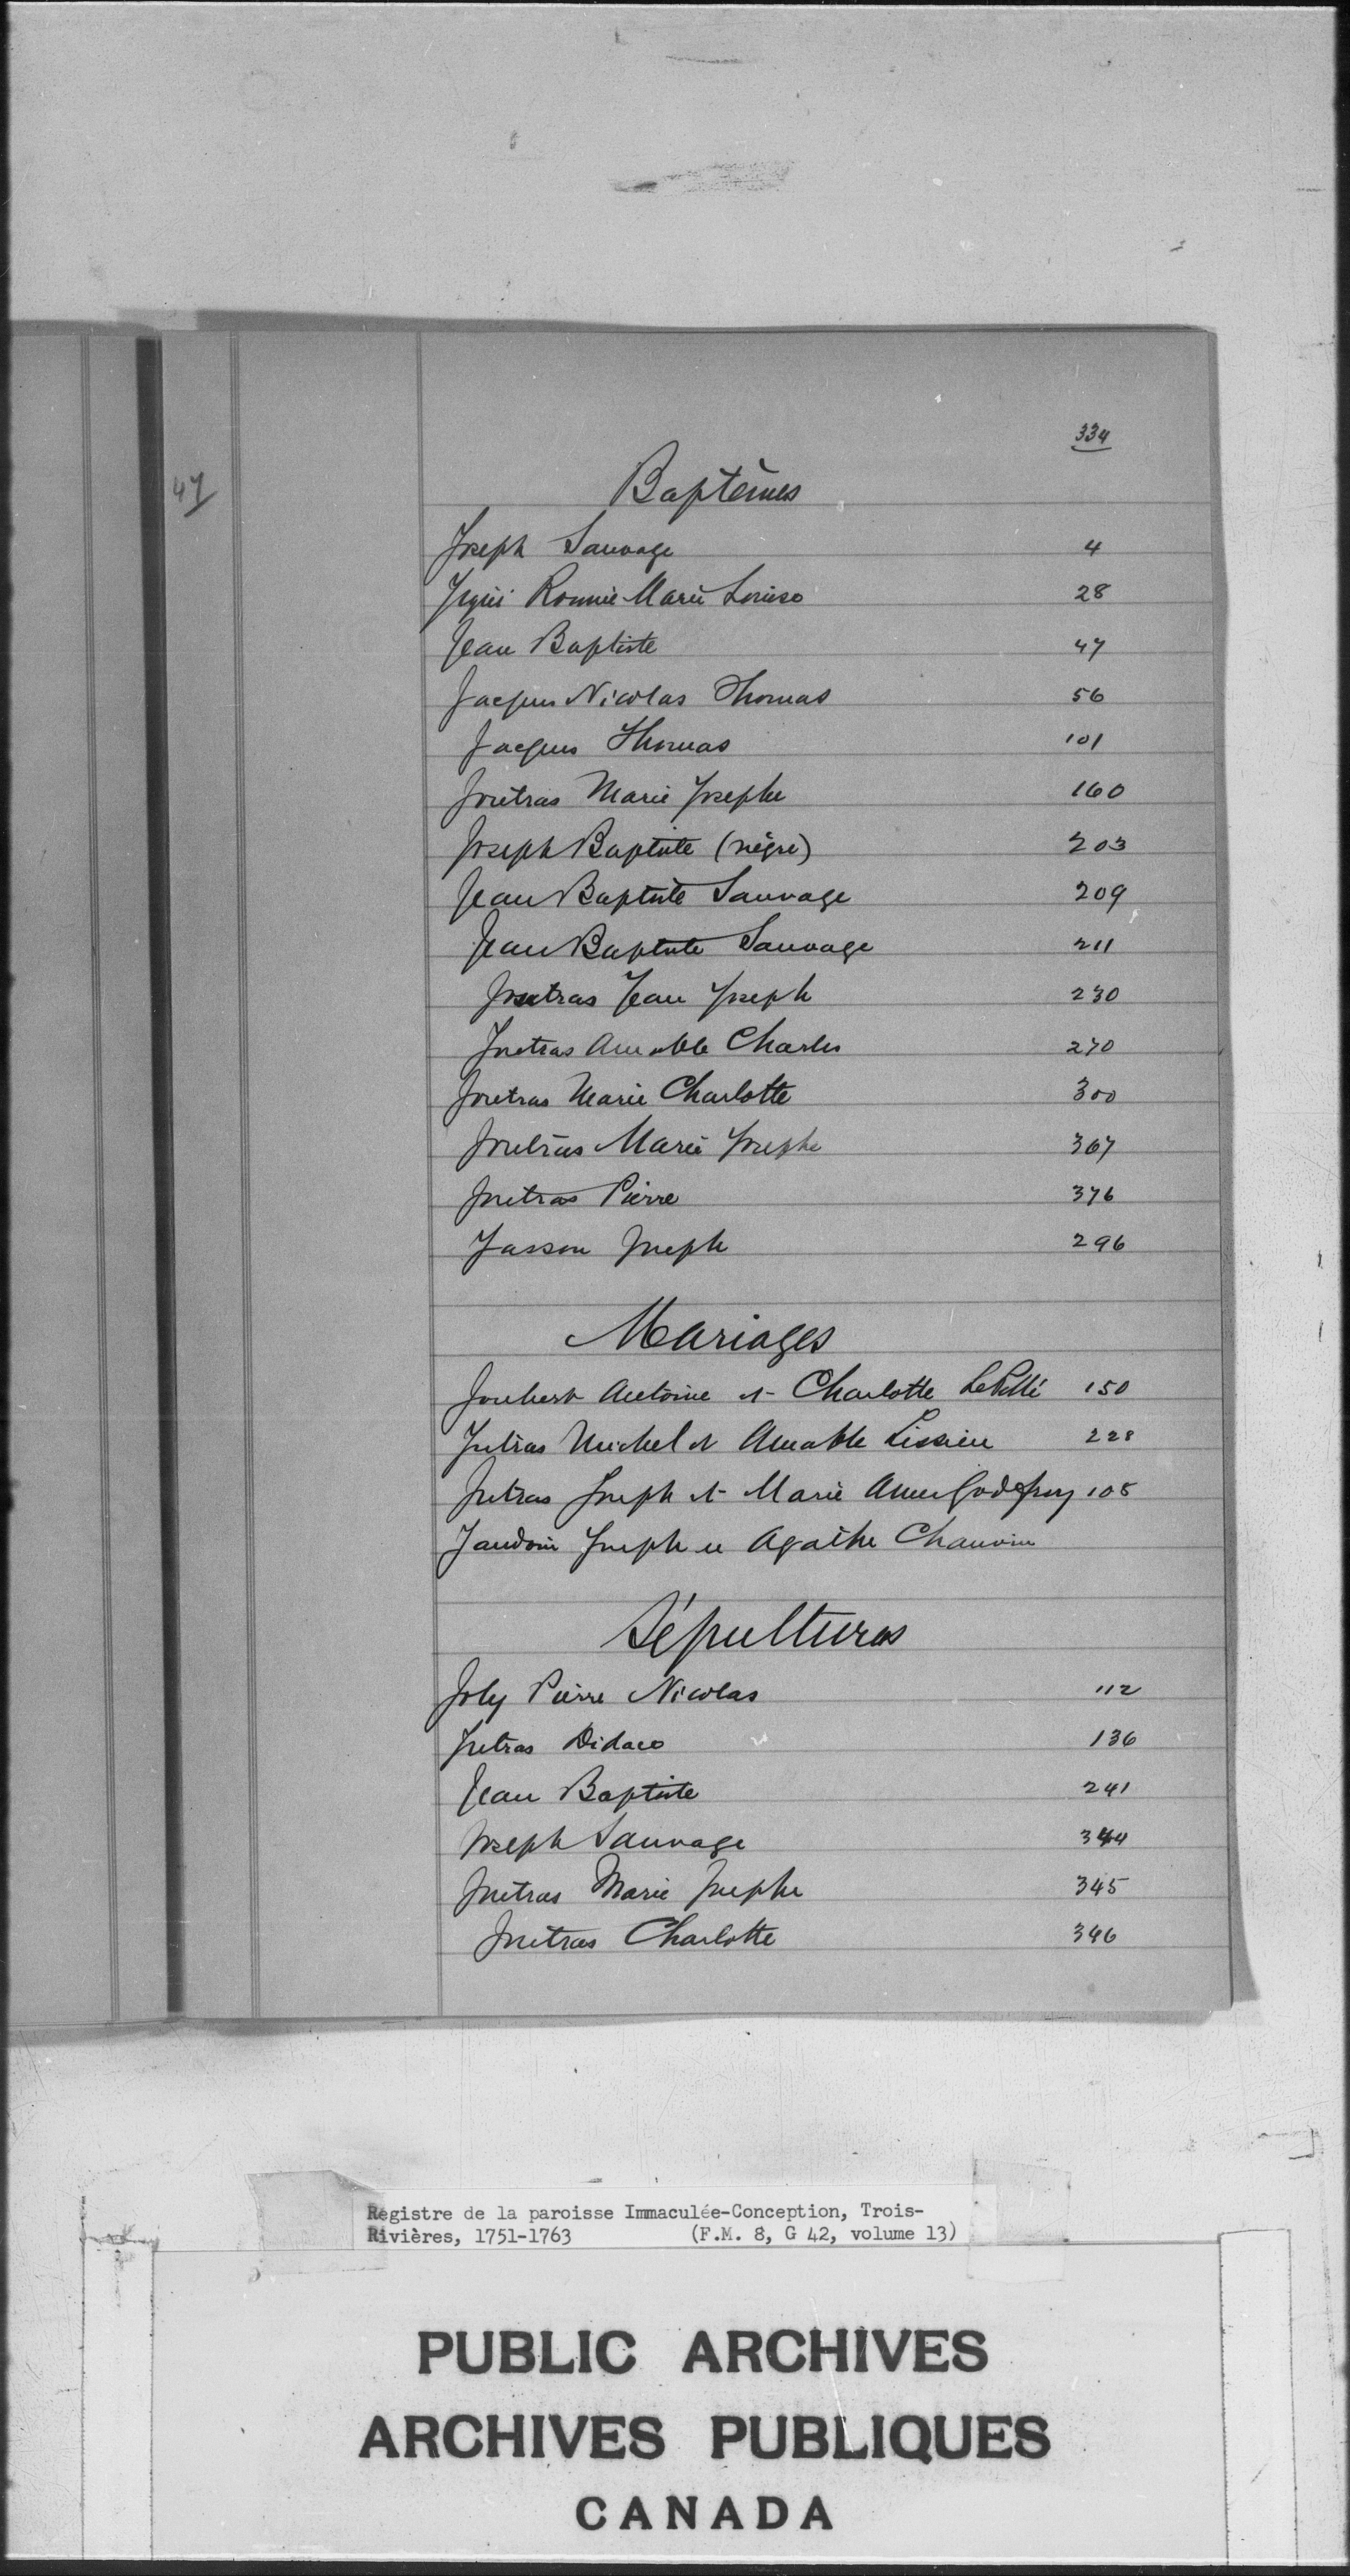 334
47
Baptêmes
Joseph Sauvage 4
Marie Louise 28
Jean Baptiste 47
Jacques Nicolas Thomas 56
Jacques Thomas 101
Joutras Marie Josephe 160
Joseph Baptiste (nègre) 203
Jean Baptiste Sauvage 209
Jean Baptiste Sauvage 211
Joutras Jean Joseph 230
Joutras Amable Charles 270
Joutras Marie Charlotte 300
Joutras Marie Josephe 367
Joutras Pierre 376
Jasson Joseph 296
Mariages
Joubert Antoine et Charlotte 150
Jutras Michel et Amable Lissieu 228
Jutras Joseph et Marie Anne Godefroy 108
Jandoin Joseph et Agathe Chauvin
Sépultures
Joly Pierre Nicolas 112
Jutras Didace 136
Jean Baptiste 241
Joseph Sauvage 344
Joutras Marie Josephe 345
Joutras Charlotte 346
Registre de la paroisse Immaculée-Conception, Trois-
Rivières, 1751-1763 (F.M. 8, G 42, volume 13)
PUBLIC ARCHIVES
ARCHIVES PUBLIQUES
CANADA